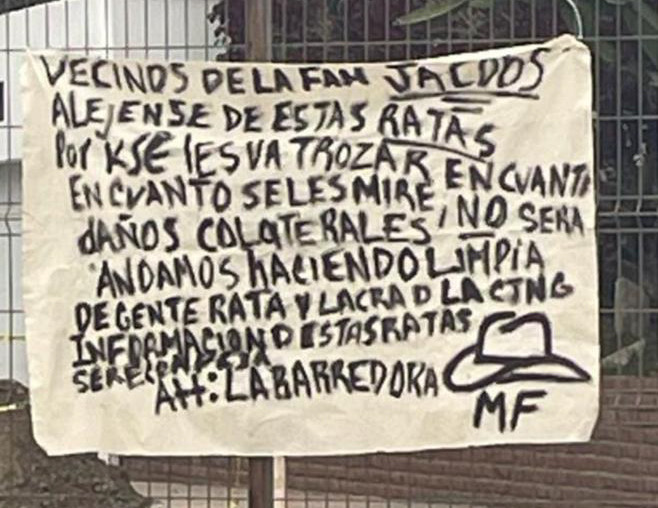 VECINOS DE LA FAM JACOOS
ALEJENSE DE ESTAS RATAS
POr KSE lES VA TROZAR
EN CUANTO SE LES MIRE EN CUANT
dAÑOS COLATERALES, NO SERA
ANDAMOS hACIENDO LIMPIA
DE GENTE RATA Y LACRA D LA CJNG
INFORMACION D ESTAS RATAS
Att: LA BARREDORA
MF